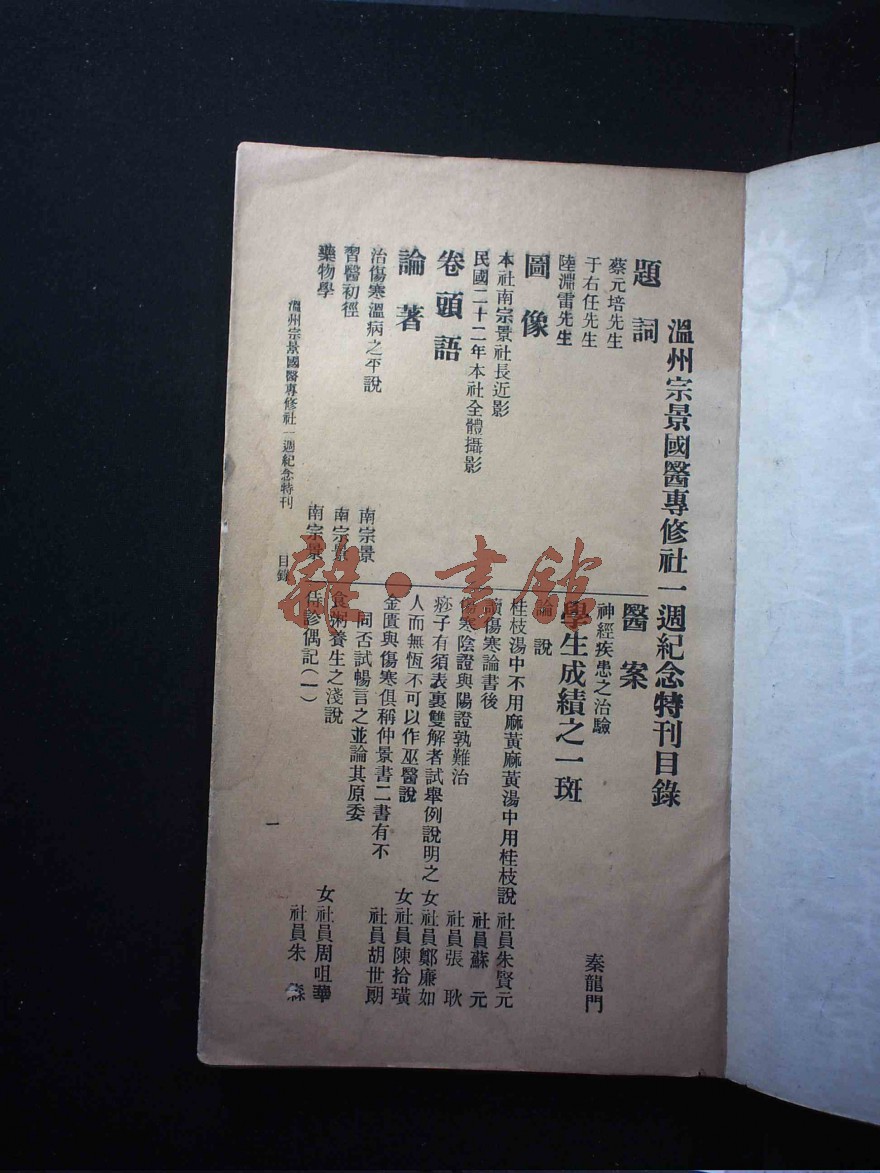 溫州宗景國醫專修社一週紀念特刊目錄
題詞
蔡元培先生
于右任先生
陸淵雷先生
圖像
本社南宗景社長近影
民國二十二年本社全體攝影
卷頭語
論著
治傷寒溫病之平說 南宗景
習醫初徑 南宗景
藥物學 南宗景
醫案
神經疾患之治驗 秦龍門
學生成績之一斑
論說
桂枝湯中不用麻黃麻黃湯中用桂枝說 社員朱賢元
讀傷寒論書後 社員蘇元
傷寒陰證與陽證孰難治 社員張耿
痧子有須表裏雙解者試舉例說明之 女社員鄭廉如
人而無恆不可以作巫醫說 女社員陳拾璜
金匱與傷寒俱稱仲景書二書有不
同否試暢言之並論其原委 社員胡世朗
食粥養生之淺說 女社員周咀華
侍診偶記(一) 社員朱森
溫州宗景國醫專修社一週紀念特刊 目錄 一
雜·書館